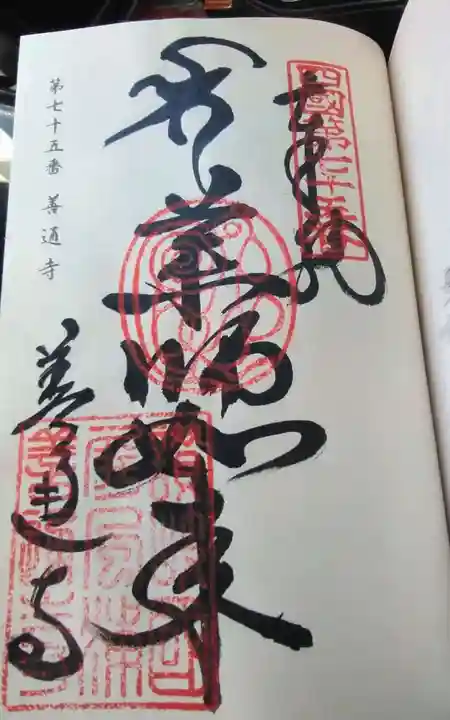 奉拝
四國第七十五番
薬師如来
善通寺
第七十五番 善通寺